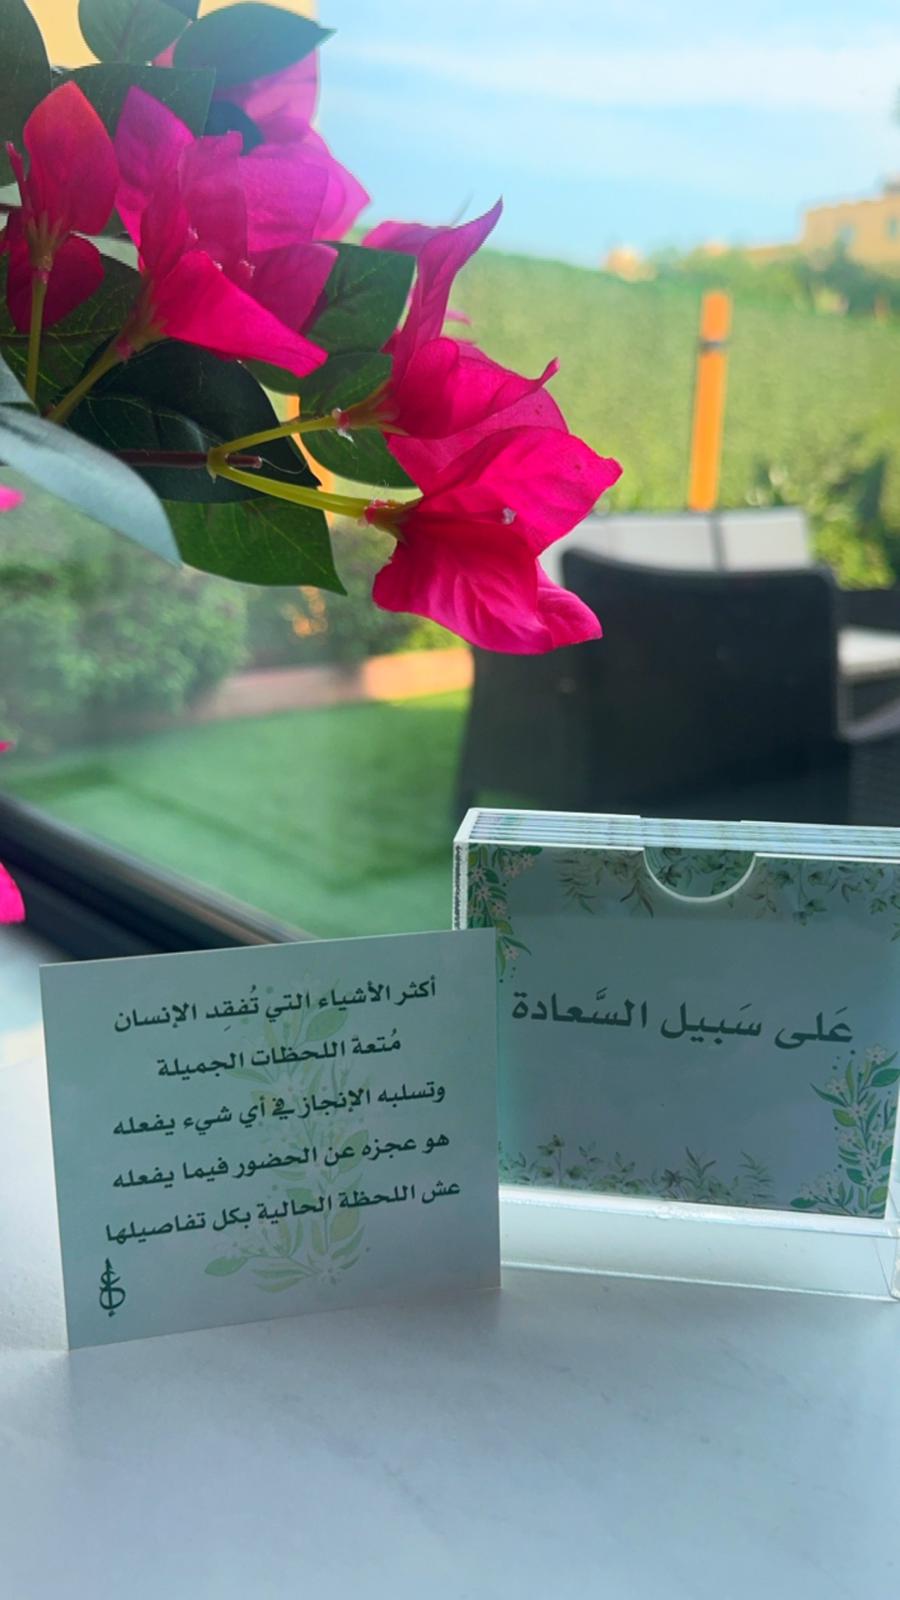 أكثر الأشياء التي تُفقِد الإنسان
مُتعة اللحظات الجميلة
وتسلبه الإنجاز في أي شيء يفعله
هو عجزه عن الحضور فيما يفعله
عش اللحظة الحالية بكل تفاصيلها
عَلى سَبيل السَّعادة